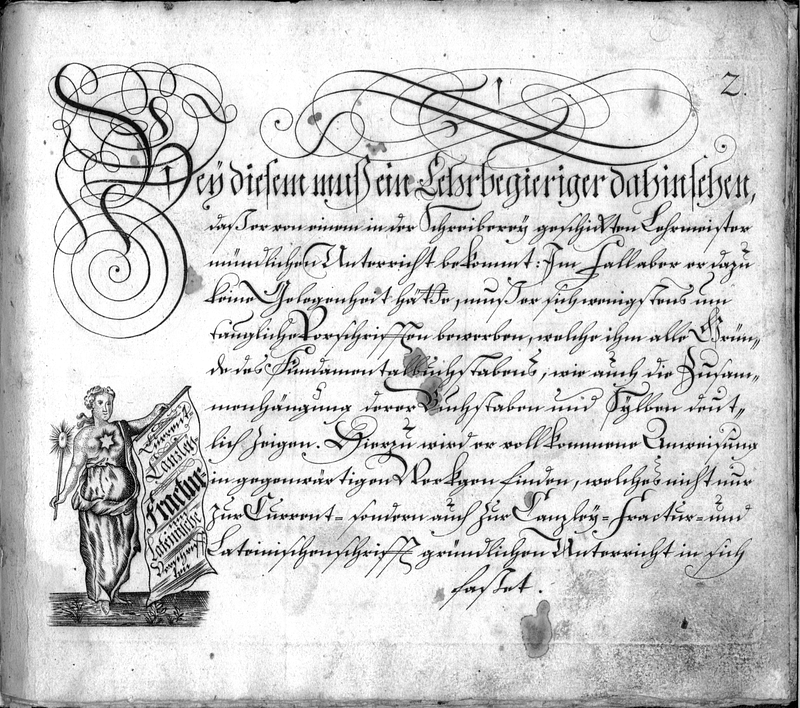 2.
Bey diesem muß ein Lehrbegieriger dahin sehen,
daß er von einem in der Schreiberey geschickten Lehrmeister
mündlichen Unterricht bekommt: Im Fall aber er dazu
keine Gelegenheit hätte, muß er sich wenigstens um
taugliche Vorschrifften bewerben, welche ihm alle Grün-
de des Fundamentalbuchstabens, wie auch die Zusam-
menhängung derer Buchstaben und Sylben deut-
lich zeigen. Hierzu wird er vollkommene Anweisung
in gegenwärtigen Werkgen finden, welches nicht nur
zur Current- sondern auch zur Canzley- Fractur- und
Lateinischenschrifft gründlichen Unterricht in sich
fasset.
Current
Canzley
Fractur
und
Lateinische
Vorschriff
ten